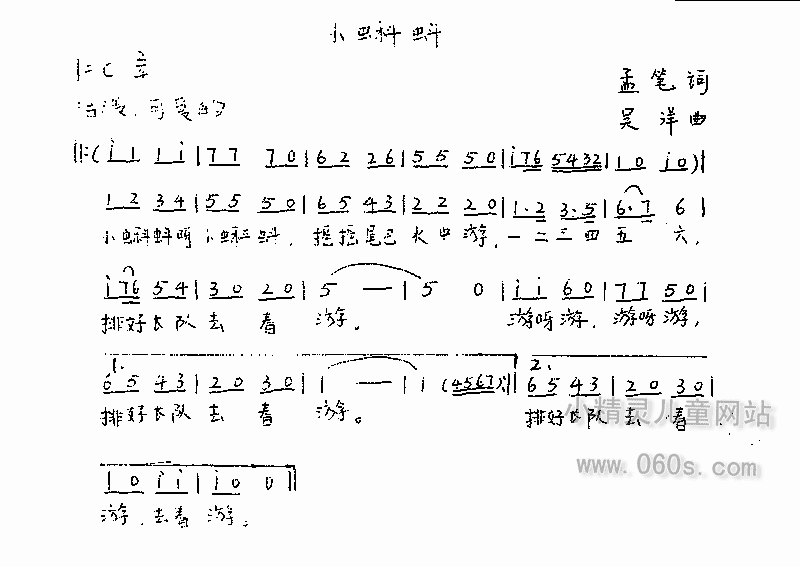 小蝌蚪
1=C 2/4
孟笔词
活泼、可爱的
吴洋曲
‖:( i i i i | 7 7 7 0 | 6 2 2 6 | 5 5 5 0 | i 7 6 5 4 3 2 | 1 0 i 0 ) |
1 2 3 4 | 5 5 5 0 | 6 5 4 3 | 2 2 2 0 | 1 · 2 3 · 5 | 6 · 7 6 |
小蝌蚪呀小蝌蚪,摇摇尾巴水中游,一二三四五六,
i 7 6 5 4 | 3 0 2 0 | 5 — | 5 0 | i i 6 0 | 7 7 5 0 |
排好长队去春游。游呀游,游呀游,
1. 2.
6 5 4 3 | 2 0 3 0 | i — | i ( 4 5 6 7 ) :‖ 6 5 4 3 | 2 0 3 0 |
排好长队去春游。排好长队去春
小精灵儿童网站
www.060s.com
1 0 i i | i 0 0 0 ‖
游,去春游。